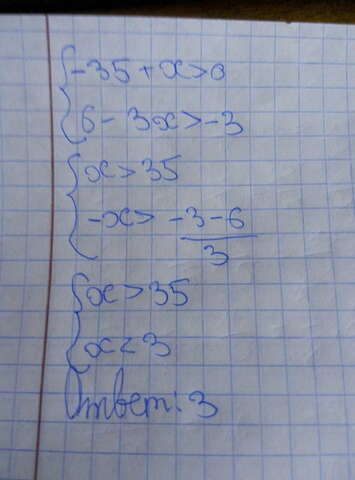 {-35 + x > 0
6 - 3x > -3
{x > 35
-x > (-3-6)/3
{x > 35
x < 3
Ответ: 3